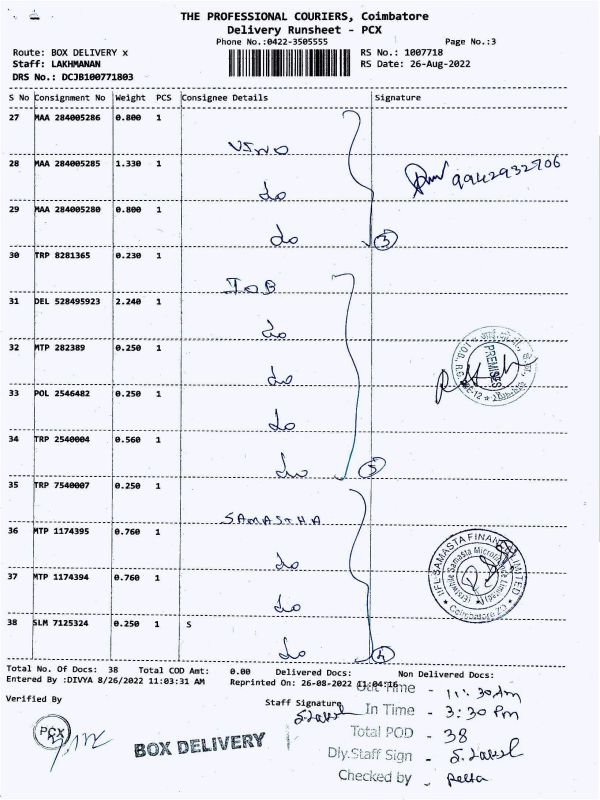 THE PROFESSIONAL COURIERS, Coimbatore
Delivery Runsheet - PCX
Phone No.:0422-3505555 Page No.:3
Route: BOX DELIVERY x RS No.: 1007718
Staff: LAKHMANAN RS Date: 26-Aug-2022
DRS No.: DCJB100771803
S No Consignment No Weight PCS Consignee Details Signature
27 MAA 284005286 0.800 1
VINO
28 MAA 284005285 1.330 1
9942932706
do
29 MAA 284005280 0.800 1
do 3
30 TRP 8281365 0.230 1
IOB
31 DEL 528495923 2.240 1
do
32 MTP 282389 0.250 1
PREMISES
do
33 POL 2546482 0.250 1
do
34 TRP 2540004 0.560 1
do 5
35 TRP 7540007 0.250 1
SAMASTHA
36 MTP 1174395 0.760 1
IIFL SAMASTA FINANCE LIMITED
(Erstwhile Samasta Microfinance Limited)
Coimbatore
do
37 MTP 1174394 0.760 1
do
38 SLM 7125324 0.250 1 S
do 4
Total No. Of Docs: 38 Total COD Amt: 0.00 Delivered Docs: Non Delivered Docs:
Entered By :DIVYA 8/26/2022 11:03:31 AM Reprinted On: 26-08-2022 11:04:16
Out Time - 11:30 Am
Verified By Staff Signature
In Time - 3:30 Pm
PCX
Total POD - 38
BOX DELIVERY
Dly.Staff Sign -
Checked by -